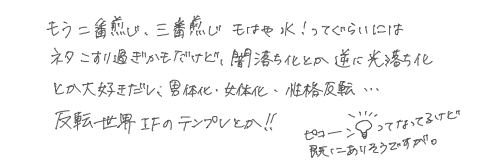 もう二番煎じ、三番煎じ もはや水！ってぐらいには
ネタこすり過ぎかもだけど、闇落ち化とか逆に光落ち化
とか大好きだし、男体化・女体化、性格反転…
反転世界IFのテンプレとか!!
ピコーン ってなってるけど
既にありそうですが。